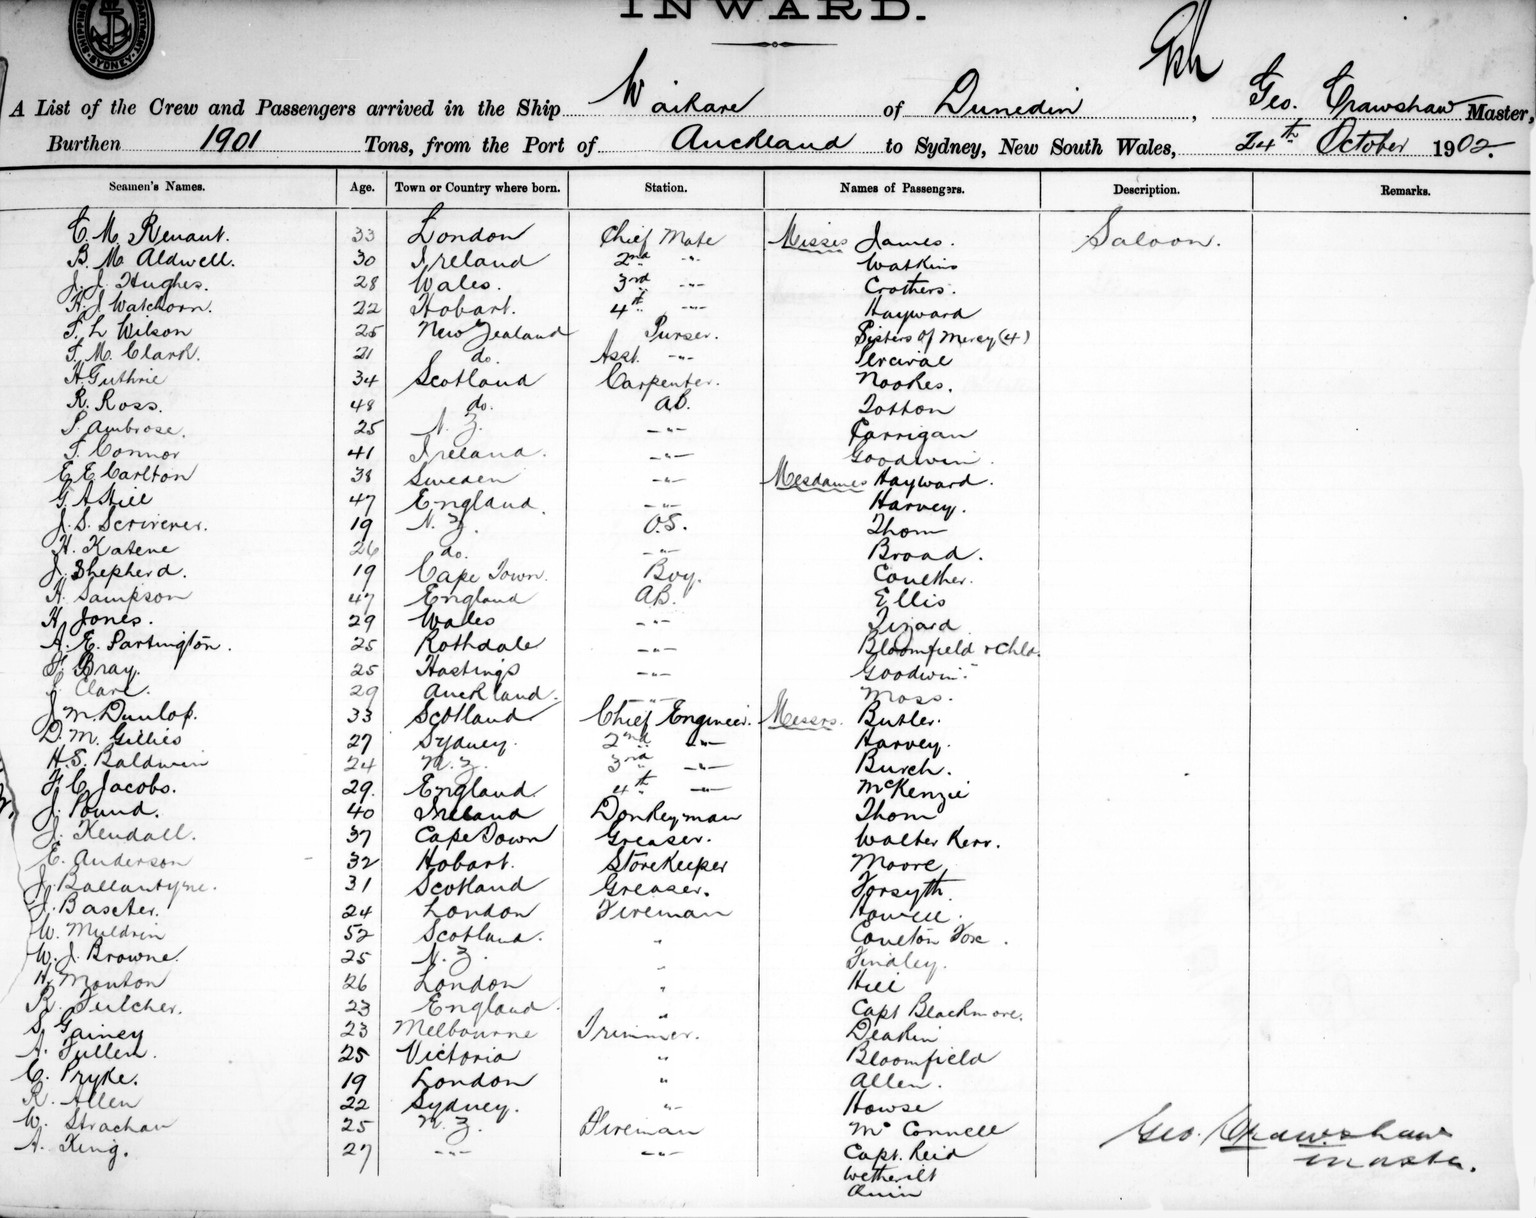 INWARD.
A List of the Crew and Passengers arrived in the Ship Waikare of Dunedin, Geo. Crawshaw Master,
Burthen 1901 Tons, from the Port of Auckland to Sydney, New South Wales, 24th October 1902.
Seamen's Names. Age. Town or Country where born. Station. Names of Passengers. Description. Remarks.
C. M. Renaut. 33 London Chief Mate Misses James. Saloon.
B. M. Aldwell. 30 Ireland 2nd -"- Watkins
J. J. Hughes. 28 Wales. 3rd -"- Crothers.
H. J. Watchorn. 22 Hobart. 4th -"- Hayward
F. L. Wilson 25 New Zealand Purser. Sisters of Mercy (4)
F. M. Clark. 21 do. Asst. -"- Percival
H. Guthrie 34 Scotland Carpenter. Noakes.
R. Ross. 48 do. AB. Totton
S. Ambrose. 25 N. Z. -"- Carrigan
F. Connor 41 Ireland. -"- Goodwin
E. E. Carlton 38 Sweden -"- Mesdames Hayward.
G. A. Hill 47 England. -"- Harvey.
J. S. Scrivener. 19 N. Z. O.S. Thom
H. Katene 26 do. -"- Broad.
J. Shepherd. 19 Cape Town. Boy.
H. Sampson 47 England AB. Ellis
H. Jones. 29 Wales -"- Tizard
A. E. Partington. 25 Rothdale -"- Bloomfield & Chld.
F. Bray. 25 Hastings -"- Goodwin.
Clark. 29 Auckland. -"- Moss.
J. M. Dunlop. 33 Scotland Chief Engineer. Messrs. Butler.
D. M. Gillies 27 Sydney. 2nd -"- Harvey.
H. S. Baldwin 24 N. Z. 3rd -"- Burch.
F. C. Jacobs. 29. England 4th -"- McKenzie
J. Pound. 40 Ireland Donkeyman Thom
J. Kendall. 37 Cape Town Greaser. Walter Kerr.
E. Anderson 32 Hobart. Storekeeper Moore
J. Ballantyne. 31 Scotland Greaser. Forsyth.
J. Baseter. 24 London Fireman Howell.
W. Muldrin 52 Scotland. " Coulton Fox.
W. J. Browne. 25 N. Z. " Findley.
H. Monton 26 London " Hill
R. Fulcher. 23 England " Capt Blackmore.
S. Gainey 23 Melbourne Trimmer. Deakin
A. Fullen. 25 Victoria " Bloomfield
C. Pryke. 19 London " Allen.
R. Allen 22 Sydney. " Howse
W. Strachan 25 N. Z. Fireman McConnell Geo. Crawshaw
A. King. 27 -"- -"- Capt. Reid Master.
Wetherilt
Quin